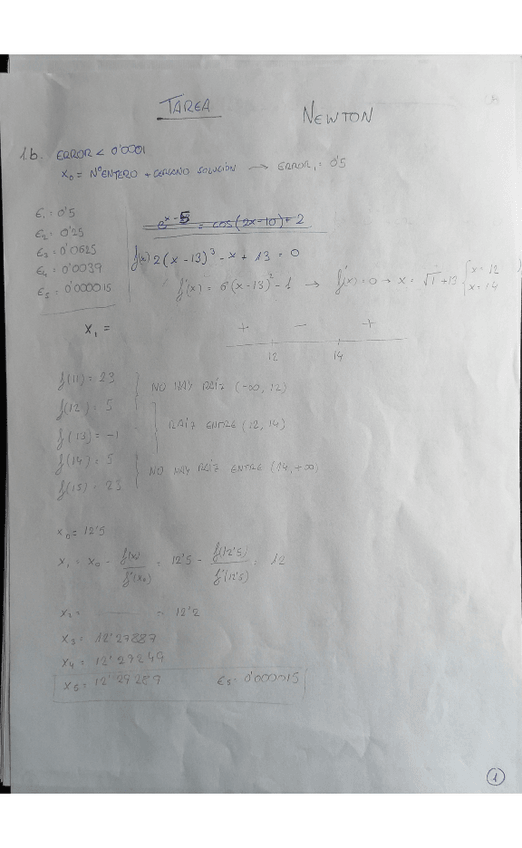 TAREA NEWTON
1b. ERROR < 0'0001
x₀ = Nº ENTERO + CERCANO SOLUCIÓN → ERROR₁ = 0'5
ε₁ = 0'5
ε₂ = 0'25
ε₃ = 0'0625
ε₄ = 0'0039
ε₅ = 0'000015
e^(x-5) = cos(2x-10)+2
f(x) 2(x-13)³ - x + 13 = 0
f'(x) = 6(x-13)² - 1 → f'(x) = 0 → x = √1 + 13 { x = 12
x = 14
x₁ =
+ - +
12 14
f(11) = 23
f(12) = 5 NO HAY RAÍZ (-∞, 12)
f(13) = -1 RAÍZ ENTRE (12, 14)
f(14) = 5
f(15) = 23 NO HAY RAÍZ ENTRE (14, +∞)
x₀ = 12'5
x₁ = x₀ - f(x₀)/f'(x₀) = 12'5 - f(12'5)/f'(12'5) = 12
x₂ = = 12'2
x₃ = 12'27887
x₄ = 12'29249
x₅ = 12'29289 ε₅ = 0'000015
1